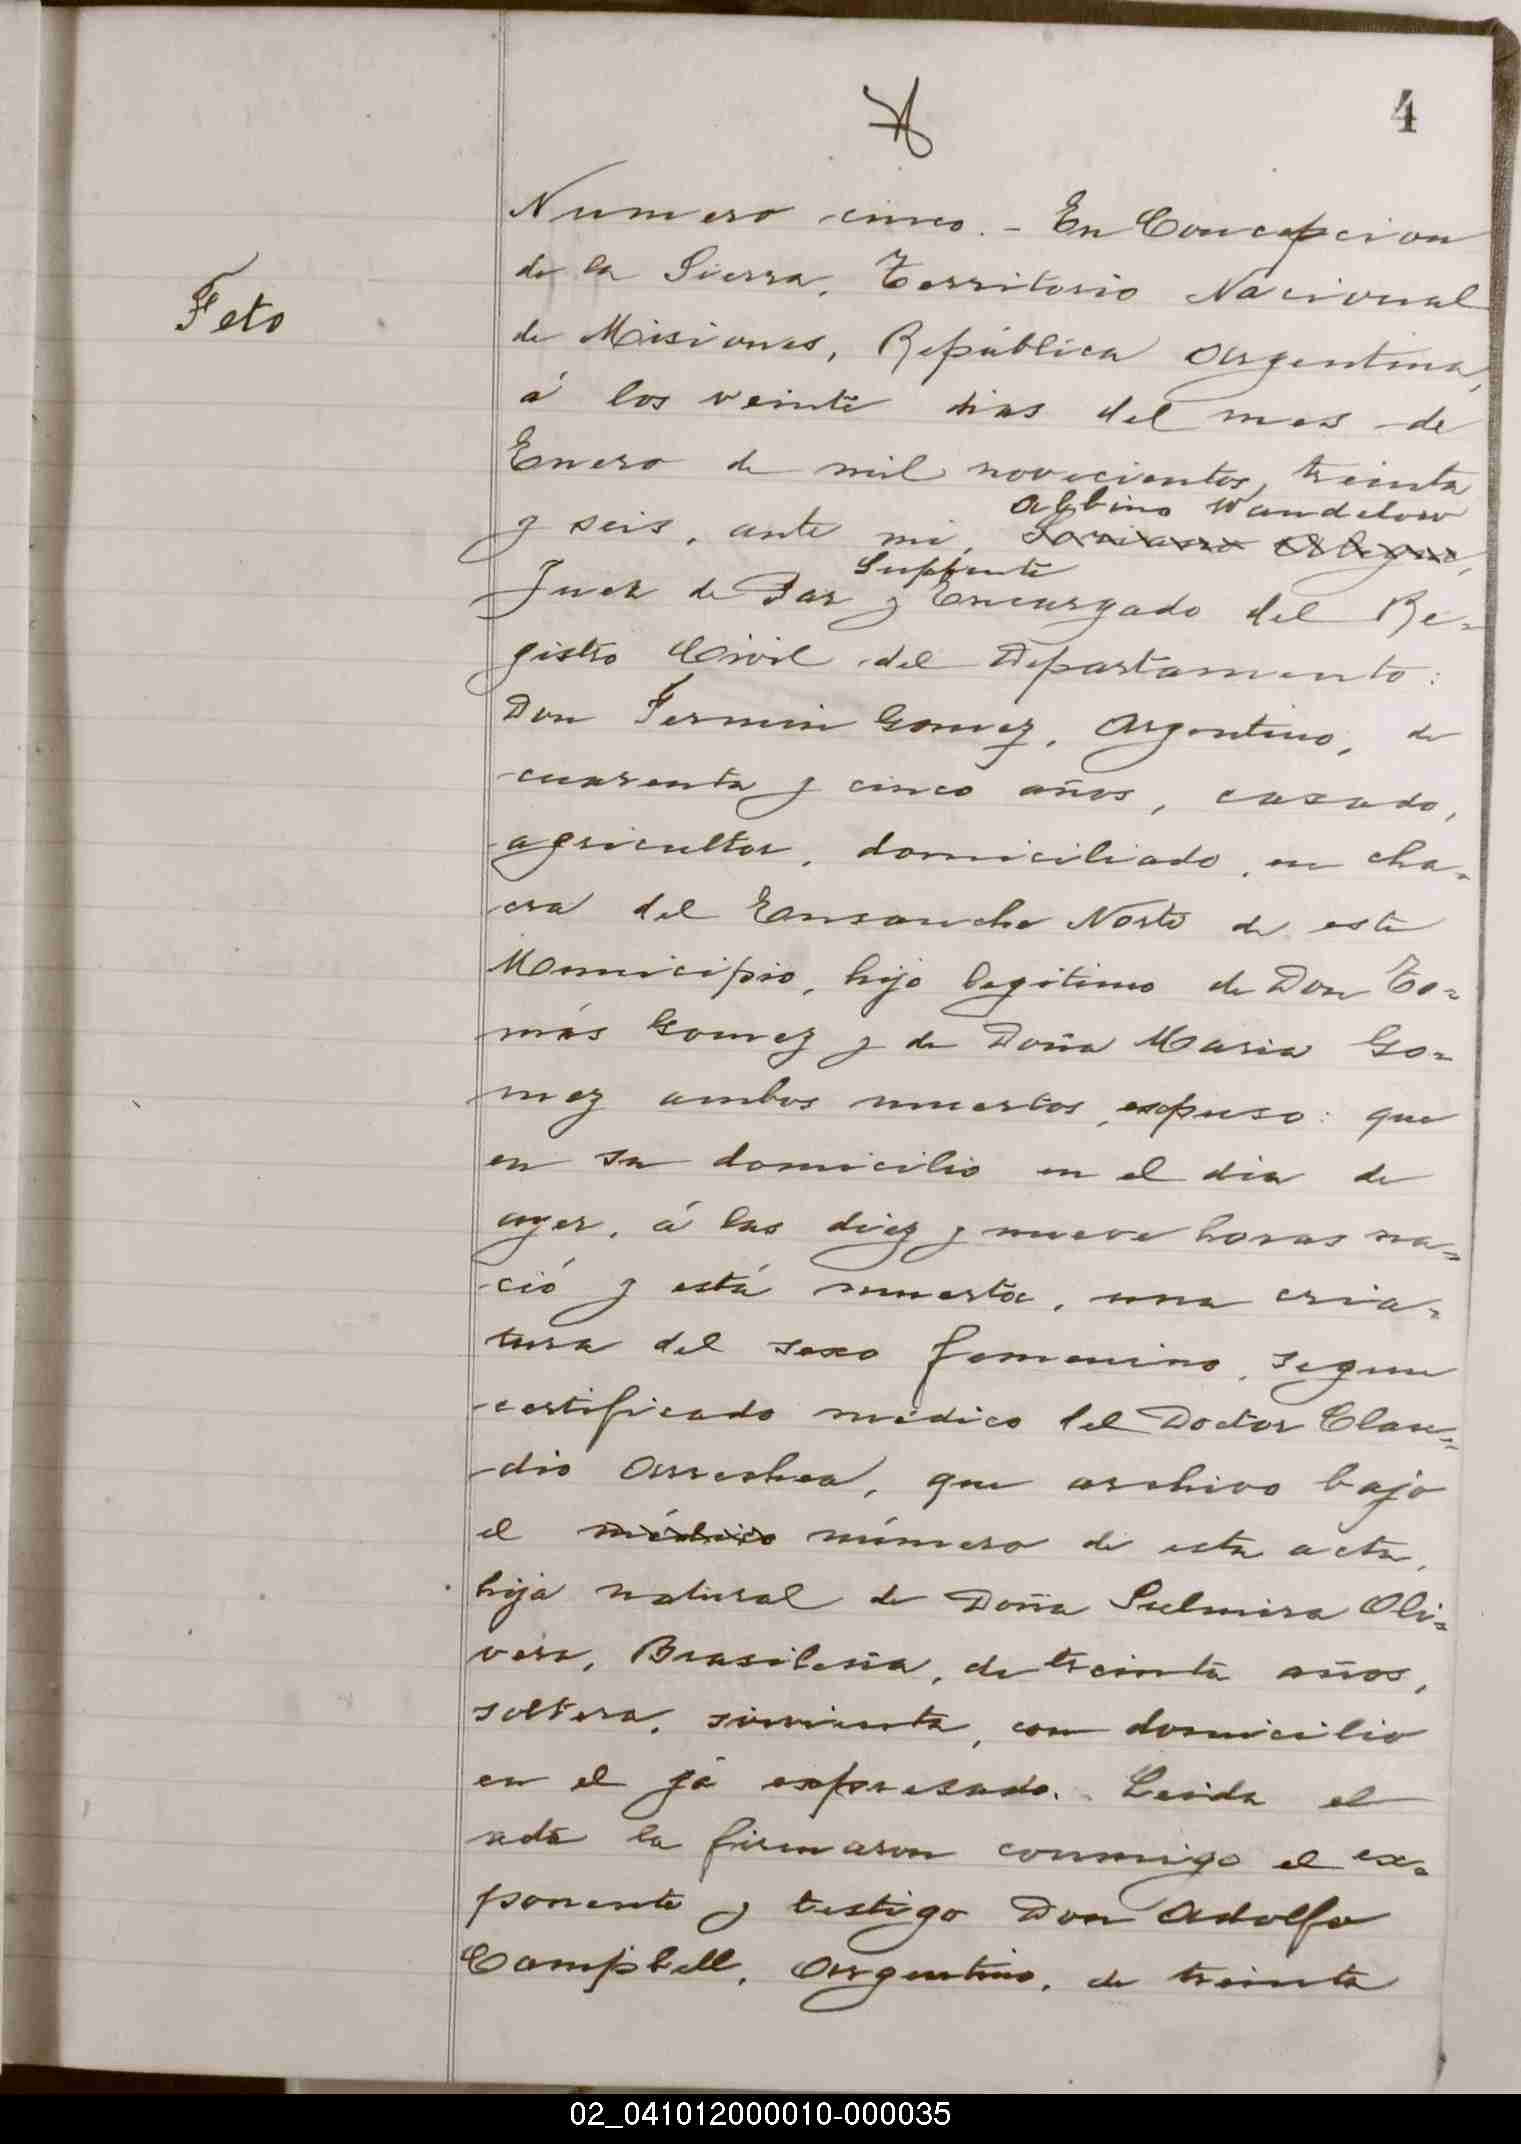 4
Feto
Numero cinco. - En Concepcion
de la Sierra, Territorio Nacional
de Misiones, República Argentina,
á los veinte dias del mes de
Enero de mil novecientos treinta
Albino Wandelow
y seis, ante mi,
Suplente
Juez de Paz y Encargado del Re-
gistro Civil del Departamento:
Don Fermin Gomez, Argentino, de
cuarenta y cinco años, casado,
agricultor, domiciliado, en cha-
cra del Ensanche Norte de este
Municipio, hijo legitimo de Don To-
más Gomez y de Doña Maria Go-
mez ambos muertos, expuso: que
en su domicilio en el dia de
ayer, á las diez y nueve horas na-
ció y está muerta, una cria-
tura del sexo femenino, segun
certificado médico del Doctor Clau-
dio Arrechea, que archivo bajo
el médico número de esta acta,
hija natural de Doña Sulmira Oli-
vera, Brasileña, de treinta años,
soltera, sirvienta, con domicilio
en el já expresado. Leida el
acta la firmaron conmigo el ex-
ponente y testigo Don Adolfo
Campbell, Argentino, de treinta
02_041012000010-000035